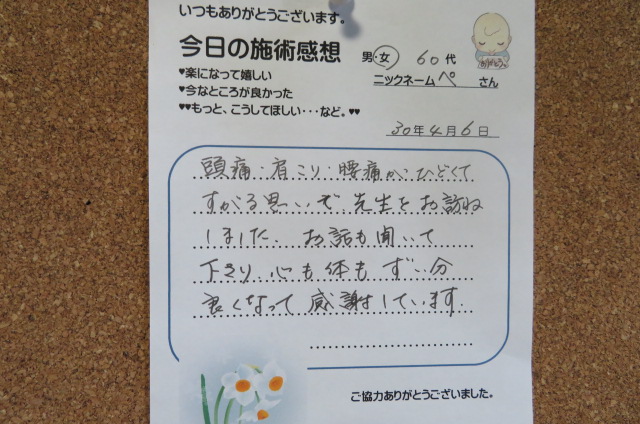 いつもありがとうございます。
今日の施術感想
男・女 60代
ありがとう。
ニックネーム ペ さん
♥楽になって嬉しい
♥今なところが良かった
♥♥もっと、こうしてほしい・・・など。♥♥
30年4月6日
頭痛・肩こり・腰痛がひどくて
すがる思いで、先生をお訪ね
しました。お話も聞いて
下さり、心も体もずい分
良くなって感謝しています。
ご協力ありがとうございました。